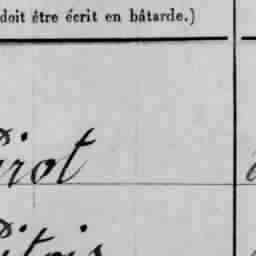 doit être écrit en bâtarde.)
irot
itois